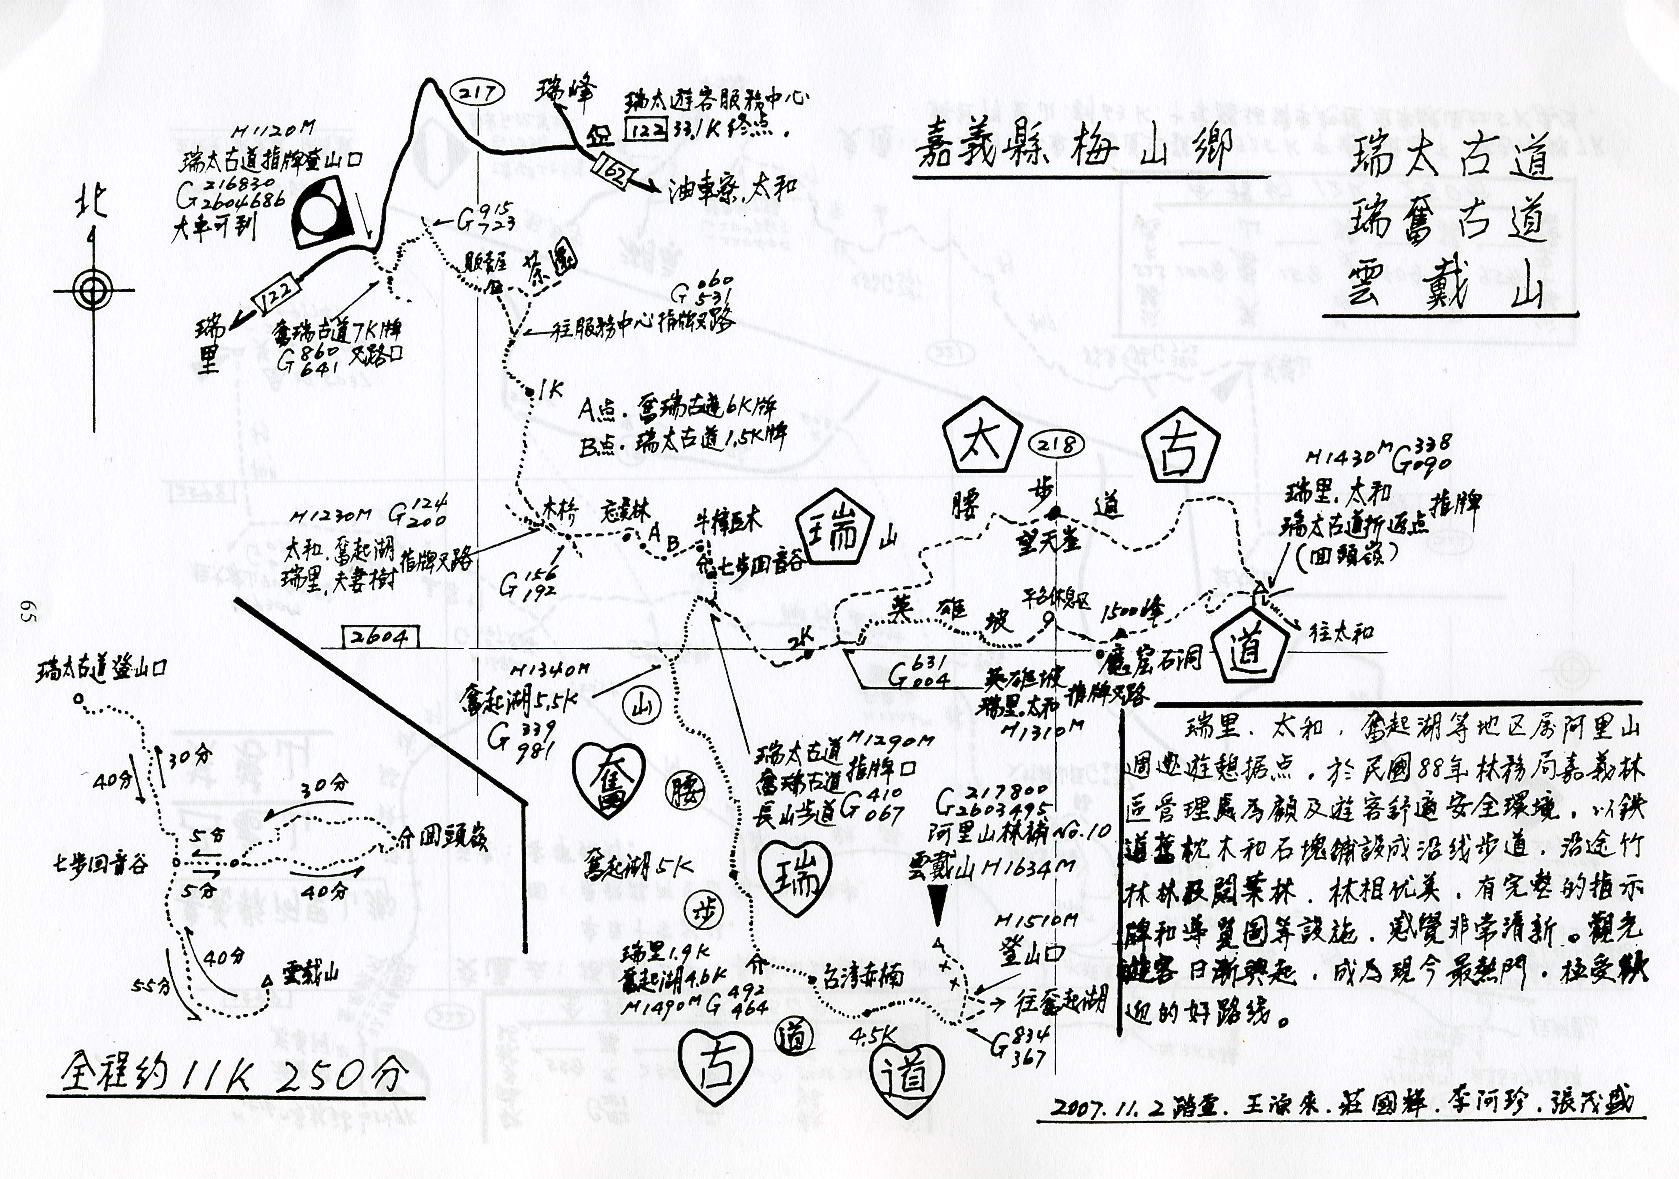 嘉義縣梅山鄉
瑞太古道
瑞奮古道
雲戴山
北
217
瑞峰
瑞太遊客服務中心
122 33.1K終点.
162
油車寮.太和
H1120M
瑞太古道指牌登山口
G 216830
2604686
大車可到
122
瑞里
奮瑞古道7K牌
G 860 叉路口
641
G 915
723
販賣屋
茶園
G 060
531
往服務中心指牌叉路
1K
A点.奮瑞古道6K牌
B点.瑞太古道1.5K牌
太
218
古
H1430M G 338
090
瑞里.太和
指牌
瑞太古道折返点
(回頭嶺)
H1230M G 124
200
太和.奮起湖
瑞里.夫妻樹
指牌叉路
木桥
忘憂林
A
B
牛樟巨木
七步回音谷
G 156
192
瑞
山腰步道
望天崖
英雄坡
平台休息区
1500峰
道
往太和
2604
2K
G 631
004
英雄坡
瑞里.太和
指牌叉路
H1310M
魔窟石洞
H1340M
奮起湖5.5K
G 339
981
山
腰
步
道
奮
瑞
古
道
瑞太古道
奮瑞古道
長山步道
H1290M
指牌口
G 410
067
奮起湖5K
G 217800
2603495
阿里山林補No.10
雲戴山H1634M
H1510M
登山口
往奮起湖
G 834
367
瑞里1.9K
奮起湖4.6K
H1490M G 492
464
台湾赤楠
4.5K
瑞太古道登山口
40分
30分
七步回音谷
5分
5分
30分
40分
回頭嶺
55分
40分
雲戴山
全程約11K 250分
瑞里.太和.奮起湖等地区屬阿里山
週邊遊憩据点.於民國88年林務局嘉義林
區管理處為顧及遊客舒適安全環境.以鉄
道舊枕木和石塊鋪設成沿线步道.沿途竹
林林及闊葉林.林相优美.有完整的指示
牌和導覽図等設施.感覺非常清新。觀光
遊客日漸興起.成為現今最熱門.極受歡
迎的好路线。
2007.11.2踏查.王源來.莊國輝.李阿珍.張茂盛
65